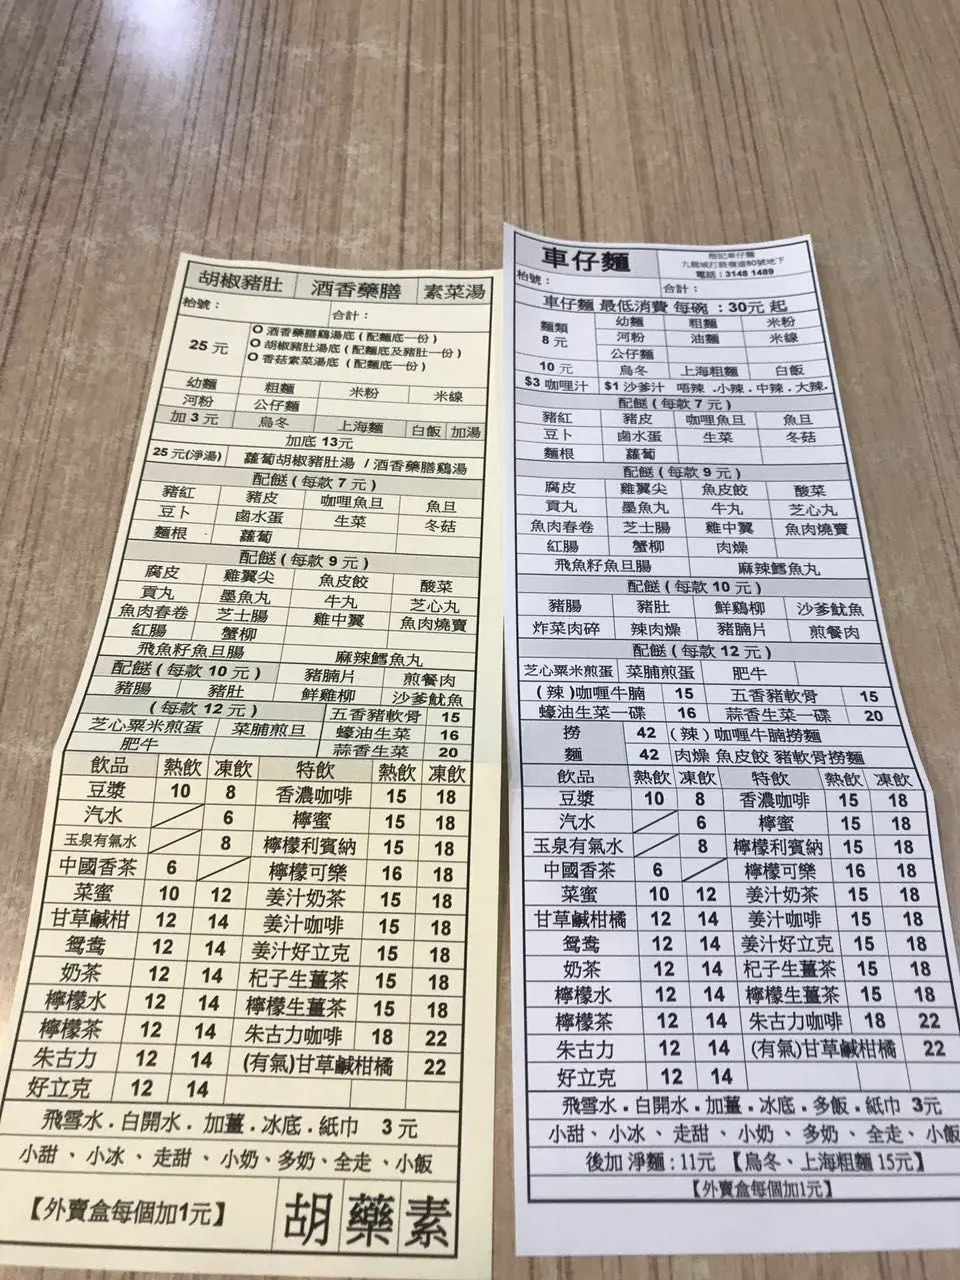 胡椒豬肚 酒香藥膳 素菜湯
枱號： 合計：
25 元
酒香藥膳鷄湯底 ( 配麵底一份 )
胡椒豬肚湯底 ( 配麵底及豬肚一份 )
香菇素菜湯底 ( 配麵底一份 )
幼麵 粗麵 米粉 米線
河粉 公仔麵
加 3 元 烏冬 上海麵 白飯 加湯
加底 13元
25 元(淨湯) 蘿蔔胡椒豬肚湯 / 酒香藥膳鷄湯
配餸 ( 每款 7 元 )
豬紅 豬皮 咖喱魚旦 魚旦
豆卜 鹵水蛋 生菜 冬菇
麵根 蘿蔔
配餸 ( 每款 9 元 )
腐皮 雞翼尖 魚皮餃 酸菜
貢丸 墨魚丸 牛丸 芝心丸
魚肉春卷 芝士腸 雞中翼 魚肉燒賣
紅腸 蟹柳
飛魚籽魚旦腸 麻辣鱈魚丸
配餸 ( 每款 10 元 ) 豬腩片 煎餐肉
豬腸 豬肚 鮮雞柳 沙爹魷魚
( 每款 12 元 ) 五香豬軟骨 15
芝心粟米煎蛋 菜脯煎旦 蠔油生菜 16
肥牛 蒜香生菜 20
飲品 熱飲 凍飲 特飲 熱飲 凍飲
豆漿 10 8 香濃咖啡 15 18
汽水 6 檸蜜 15 18
玉泉有氣水 8 檸檬利賓納 15 18
中國香茶 6 檸檬可樂 16 18
菜蜜 10 12 姜汁奶茶 15 18
甘草鹹柑 12 14 姜汁咖啡 15 18
鴛鴦 12 14 姜汁好立克 15 18
奶茶 12 14 杞子生薑茶 15 18
檸檬水 12 14 檸檬生薑茶 15 18
檸檬茶 12 14 朱古力咖啡 18 22
朱古力 12 14 (有氣)甘草鹹柑橘 22
好立克 12 14
飛雪水 . 白開水 . 加薑 . 冰底 . 紙巾 3 元
小甜 、 小冰 、 走甜 、 小奶、多奶、全走 、小飯
【外賣盒每個加1元】 胡 藥 素
車仔麵
楷記車仔麵
九龍城打鼓嶺道80號地下
電話：3148 1489
枱號： 合計：
車仔麵 最低消費 每碗 : 30元 起
麵類 幼麵 粗麵 米粉
8 元 河粉 油麵 米線
公仔麵
10 元 烏冬 上海粗麵 白飯
$3 咖哩汁 $1 沙爹汁 唔辣 .小辣 .中辣 .大辣.
配餸 ( 每款 7 元 )
豬紅 豬皮 咖喱魚旦 魚旦
豆卜 鹵水蛋 生菜 冬菇
麵根 蘿蔔
配餸 ( 每款 9 元 )
腐皮 雞翼尖 魚皮餃 酸菜
貢丸 墨魚丸 牛丸 芝心丸
魚肉春卷 芝士腸 雞中翼 魚肉燒賣
紅腸 蟹柳 肉燥
飛魚籽魚旦腸 麻辣鱈魚丸
配餸 ( 每款 10 元 )
豬腸 豬肚 鮮鷄柳 沙爹魷魚
炸菜肉碎 辣肉燥 豬腩片 煎餐肉
配餸 ( 每款 12 元 )
芝心粟米煎蛋 菜脯煎蛋 肥牛
( 辣 )咖喱牛腩 15 五香豬軟骨 15
蠔油生菜一碟 16 蒜香生菜一碟 20
撈 42 ( 辣 ) 咖喱牛腩撈麵
麵 42 肉燥 魚皮餃 豬軟骨撈麵
飲品 熱飲 凍飲 特飲 熱飲 凍飲
豆漿 10 8 香濃咖啡 15 18
汽水 6 檸蜜 15 18
玉泉有氣水 8 檸檬利賓納 15 18
中國香茶 6 檸檬可樂 16 18
菜蜜 10 12 姜汁奶茶 15 18
甘草鹹柑橘 12 14 姜汁咖啡 15 18
鴛鴦 12 14 姜汁好立克 15 18
奶茶 12 14 杞子生薑茶 15 18
檸檬水 12 14 檸檬生薑茶 15 18
檸檬茶 12 14 朱古力咖啡 18 22
朱古力 12 14 (有氣)甘草鹹柑橘 22
好立克 12 14
飛雪水 . 白開水 . 加薑 . 冰底 . 多飯 . 紙巾 3元
小甜 、 小冰 、 走甜 、 小奶 、 多奶 、 全走 、 小飯
後加 淨麵 : 11元 【烏冬、上海粗麵 15元】
【外賣盒每個加1元】